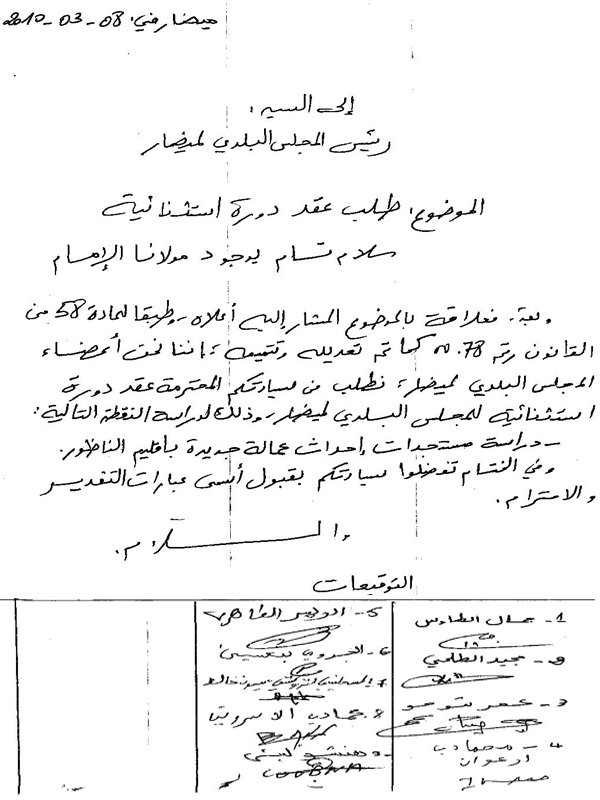 ميضار في: 08-03-2010
إلى السيد:
رئيس المجلس البلدي لميضار
الموضوع: طلب عقد دورة استثنائية
سلام تام بوجود مولانا الإمام
وبعد، فعلاقة بالموضوع المشار إليه أعلاه، وطبقا للمادة 58 من
القانون رقم 78.00 كما تم تعديله وتتميمه، إننا نحن أعضاء
المجلس البلدي لميضار، نطلب من سيادتكم المحترمة عقد دورة
استثنائية للمجلس البلدي لميضار، وذلك لدراسة النقطة التالية:
- دراسة مستجدات إحداث عمالة جديدة بإقليم الناظور.
وفي الختام تفضلوا سيادتكم بقبول أسمى عبارات التقدير
والاحترام.
والسلام.
التوقيعات
1- جمال الطاوس
2- مجيد
3- عمر
4- محمادي
5- الطاهر
6-
7-
8- حمادي
9- لبنى
LOUBNA